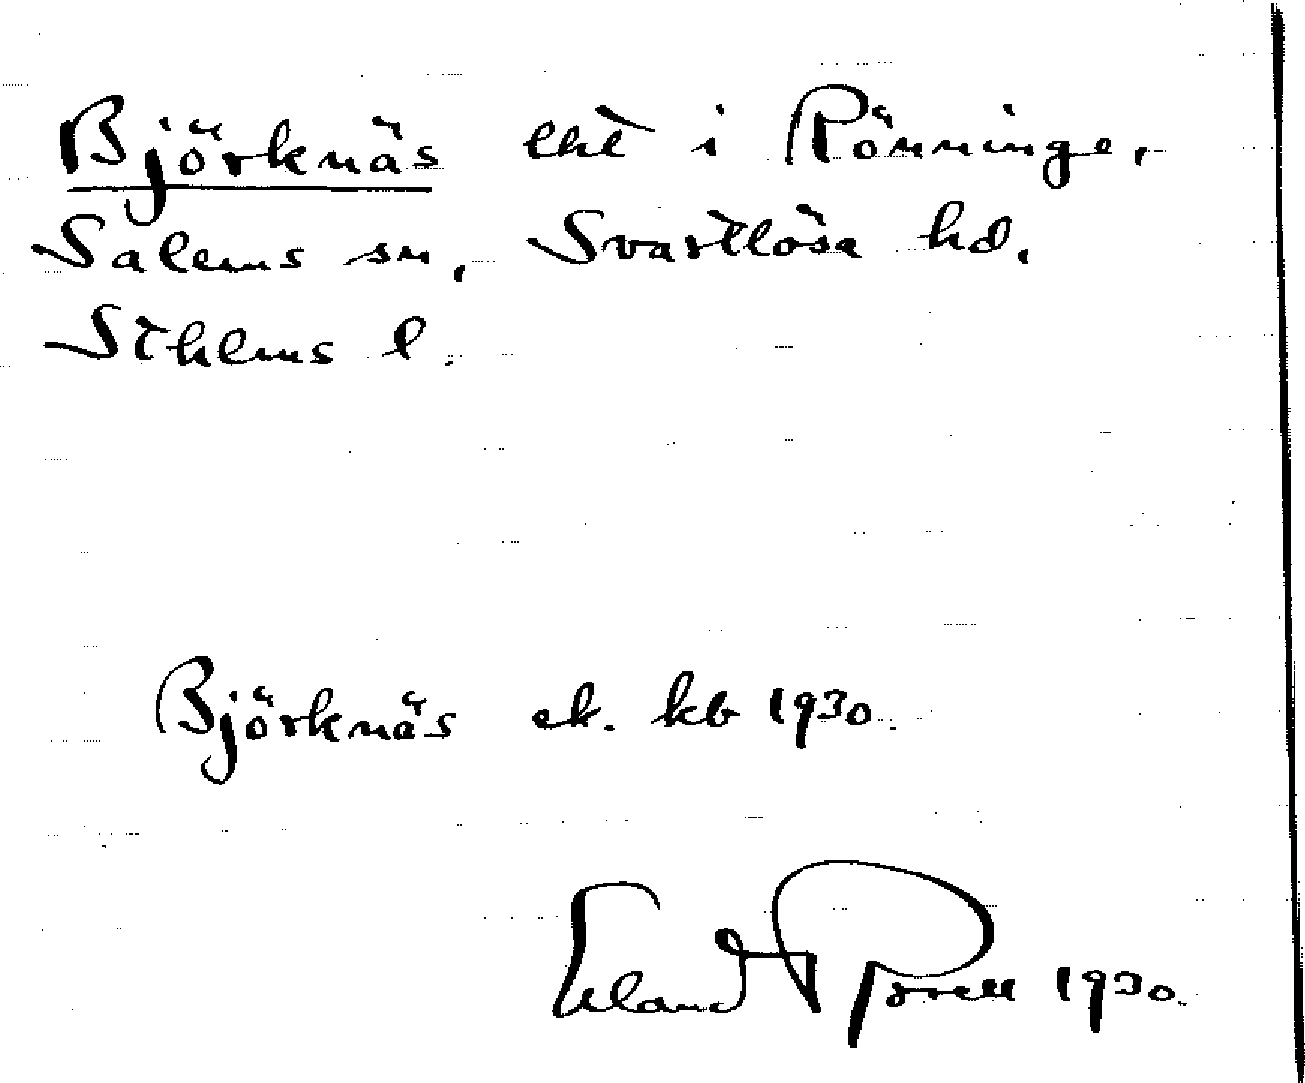 Björknäs lht i Rönninge,
Salems sn, Svartlösa hd,
Sthlms l.
Björknäs ek. kb 1930.
1930.